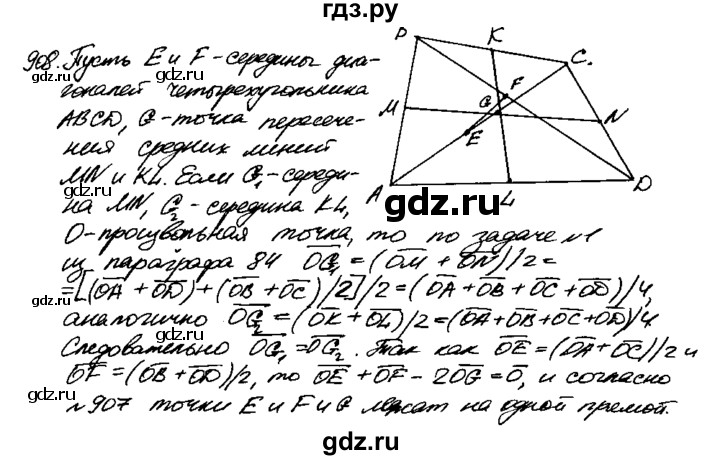 гдз.ру
908. Пусть E и F - середины диа-
гоналей четырехугольника
ABCD, G - точка пересече-
ния средних линий
MN и KL. Если G₁ - середи-
на MN, G₂ - середина KL,
O - произвольная точка, то по задаче №1
из параграфа 84 OG₁ = (OM + ON)/2 =
= [(OA + OD) + (OB + OC)/2]/2 = (OA + OB + OC + OD)/4,
аналогично OG₂ = (OK + OL)/2 = (OA + OB + OC + OD)/4
Следовательно OG₁ = OG₂. Так как OE = (OA + OC)/2 и
OF = (OB + OD)/2, то OE + OF - 2OG = O, и согласно
№907 точки E и F и G лежат на одной прямой.
P K C.
F
M G N
E
A L D
gdz.ru
gdz.ru